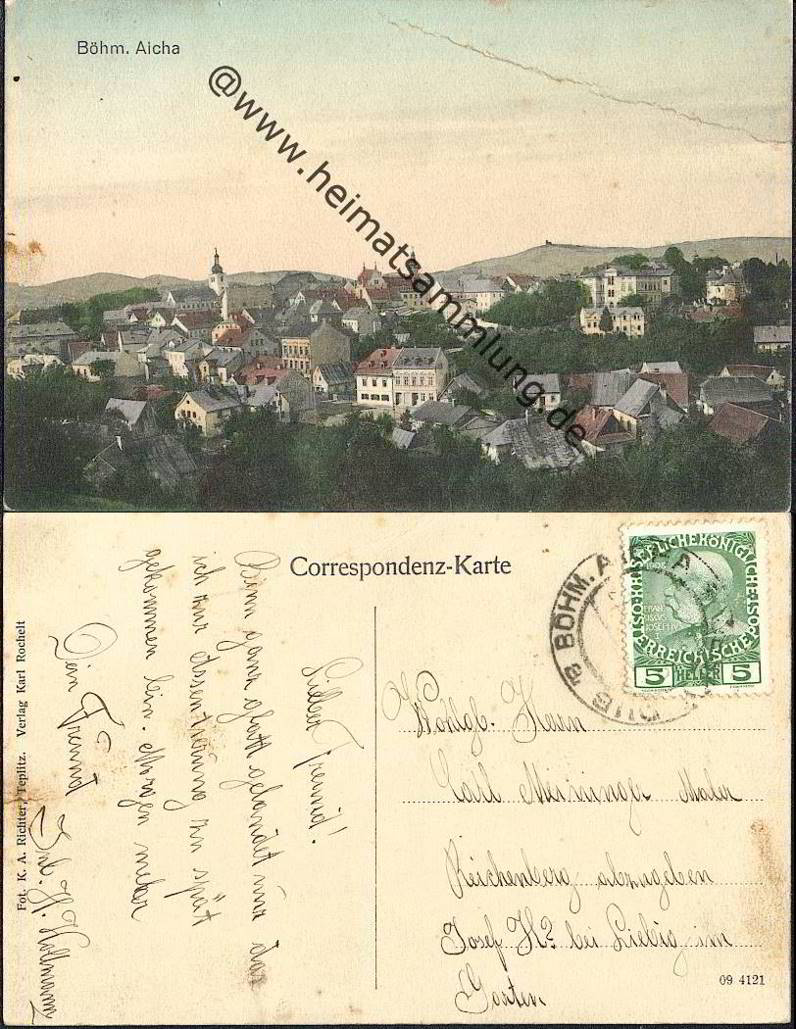 Böhm. Aicha
@www.heimatsammlung.de
Correspondenz-Karte
KAISERLICHEKÖNIGLICHE
ÖSTERREICHISCHE POST
1908
FRANZ
JOSEPH I
5 HELLER 5
BÖHM. AICHA
Lieber Freund!
Bin ganz glatt gelandet nur das
ich zur Assentierung zu spät
gekommen bin. Morgen mehr
Dein Freund
Wohlgb. Herrn
Carl Meininger Maler
Reichenberg abzugeben
Josef H? bei Liebig im
Garten
Fot. K. A. Richter, Teplitz. Verlag Karl Rochelt
09 4121